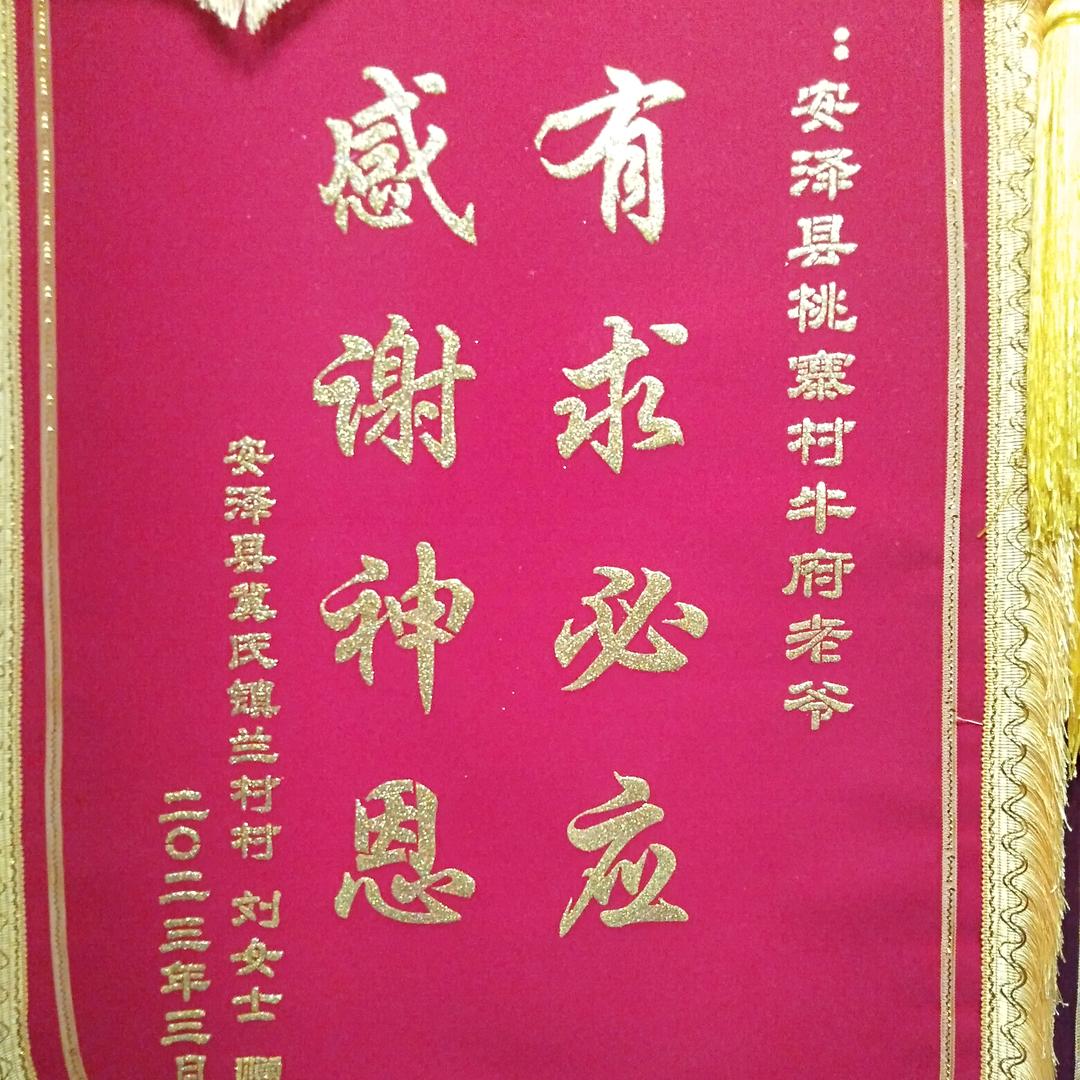 ：安泽县桃寨村牛府老爷
有求必应
感谢神恩
安泽县冀氏镇兰村村 刘女士
二〇二三年三月